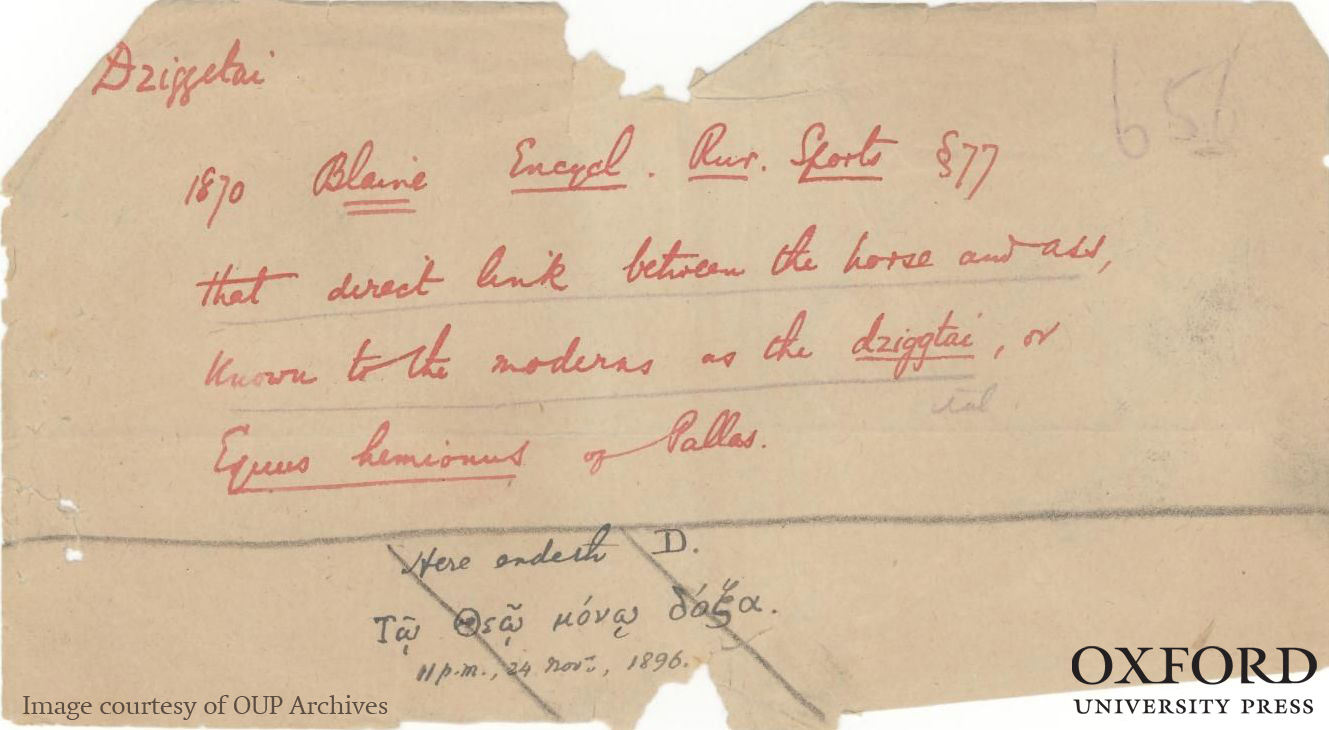 Dziggetai
656
1870 Blaine Encycl. Rur. Sports §77
that direct link between the horse and ass,
known to the moderns as the dziggtai, or
ital
Equus hemionus of Pallas.
Here endeth D.
Τῷ Θεῷ μόνῳ δόξα.
11 p.m., 24 Nov., 1896.
Image courtesy of OUP Archives
OXFORD
UNIVERSITY PRESS